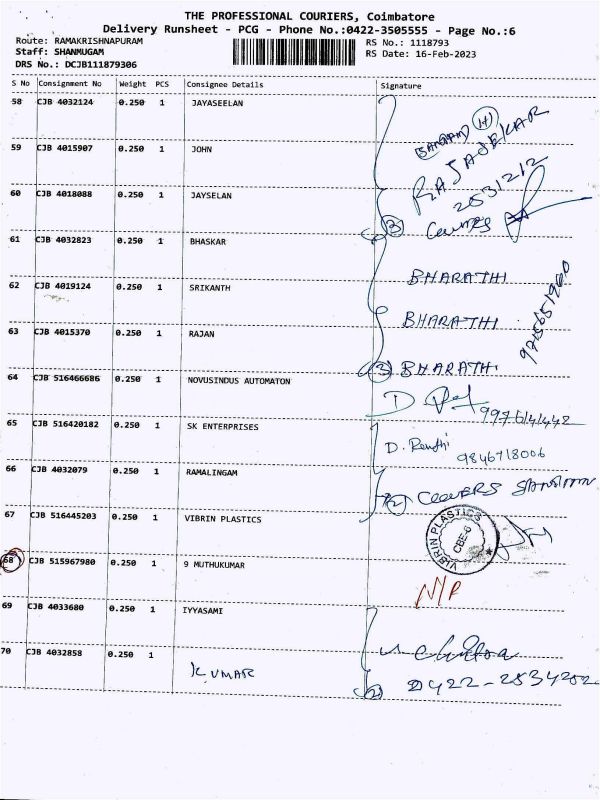 THE PROFESSIONAL COURIERS, Coimbatore
Delivery Runsheet - PCG - Phone No.:0422-3505555 - Page No.:6
Route: RAMAKRISHNAPURAM
RS No.: 1118793
Staff: SHANMUGAM
RS Date: 16-Feb-2023
DRS No.: DCJB111879306
S No Consignment No Weight PCS Consignee Details Signature
58 CJB 4032124 0.250 1 JAYASEELAN
RAJASEKAR
59 CJB 4015907 0.250 1 JOHN
2531212
60 CJB 4018088 0.250 1 JAYSELAN
3
61 CJB 4032823 0.250 1 BHASKAR
BHARATHI
62 CJB 4019124 0.250 1 SRIKANTH
BHARATHI
9715651960
63 CJB 4015370 0.250 1 RAJAN
3 BHARATHI
64 CJB 516466686 0.250 1 NOVUSINDUS AUTOMATON
65 CJB 516420182 0.250 1 SK ENTERPRISES
9846718006
66 CJB 4032079 0.250 1 RAMALINGAM
2
67 CJB 516445203 0.250 1 VIBRIN PLASTICS
VIBRIN PLASTICS
CBE-6
68 CJB 515967980 0.250 1 9 MUTHUKUMAR
N/R
69 CJB 4033680 0.250 1 IYYASAMI
70 CJB 4032858 0.250 1
KUMAR
2 0422-2534202